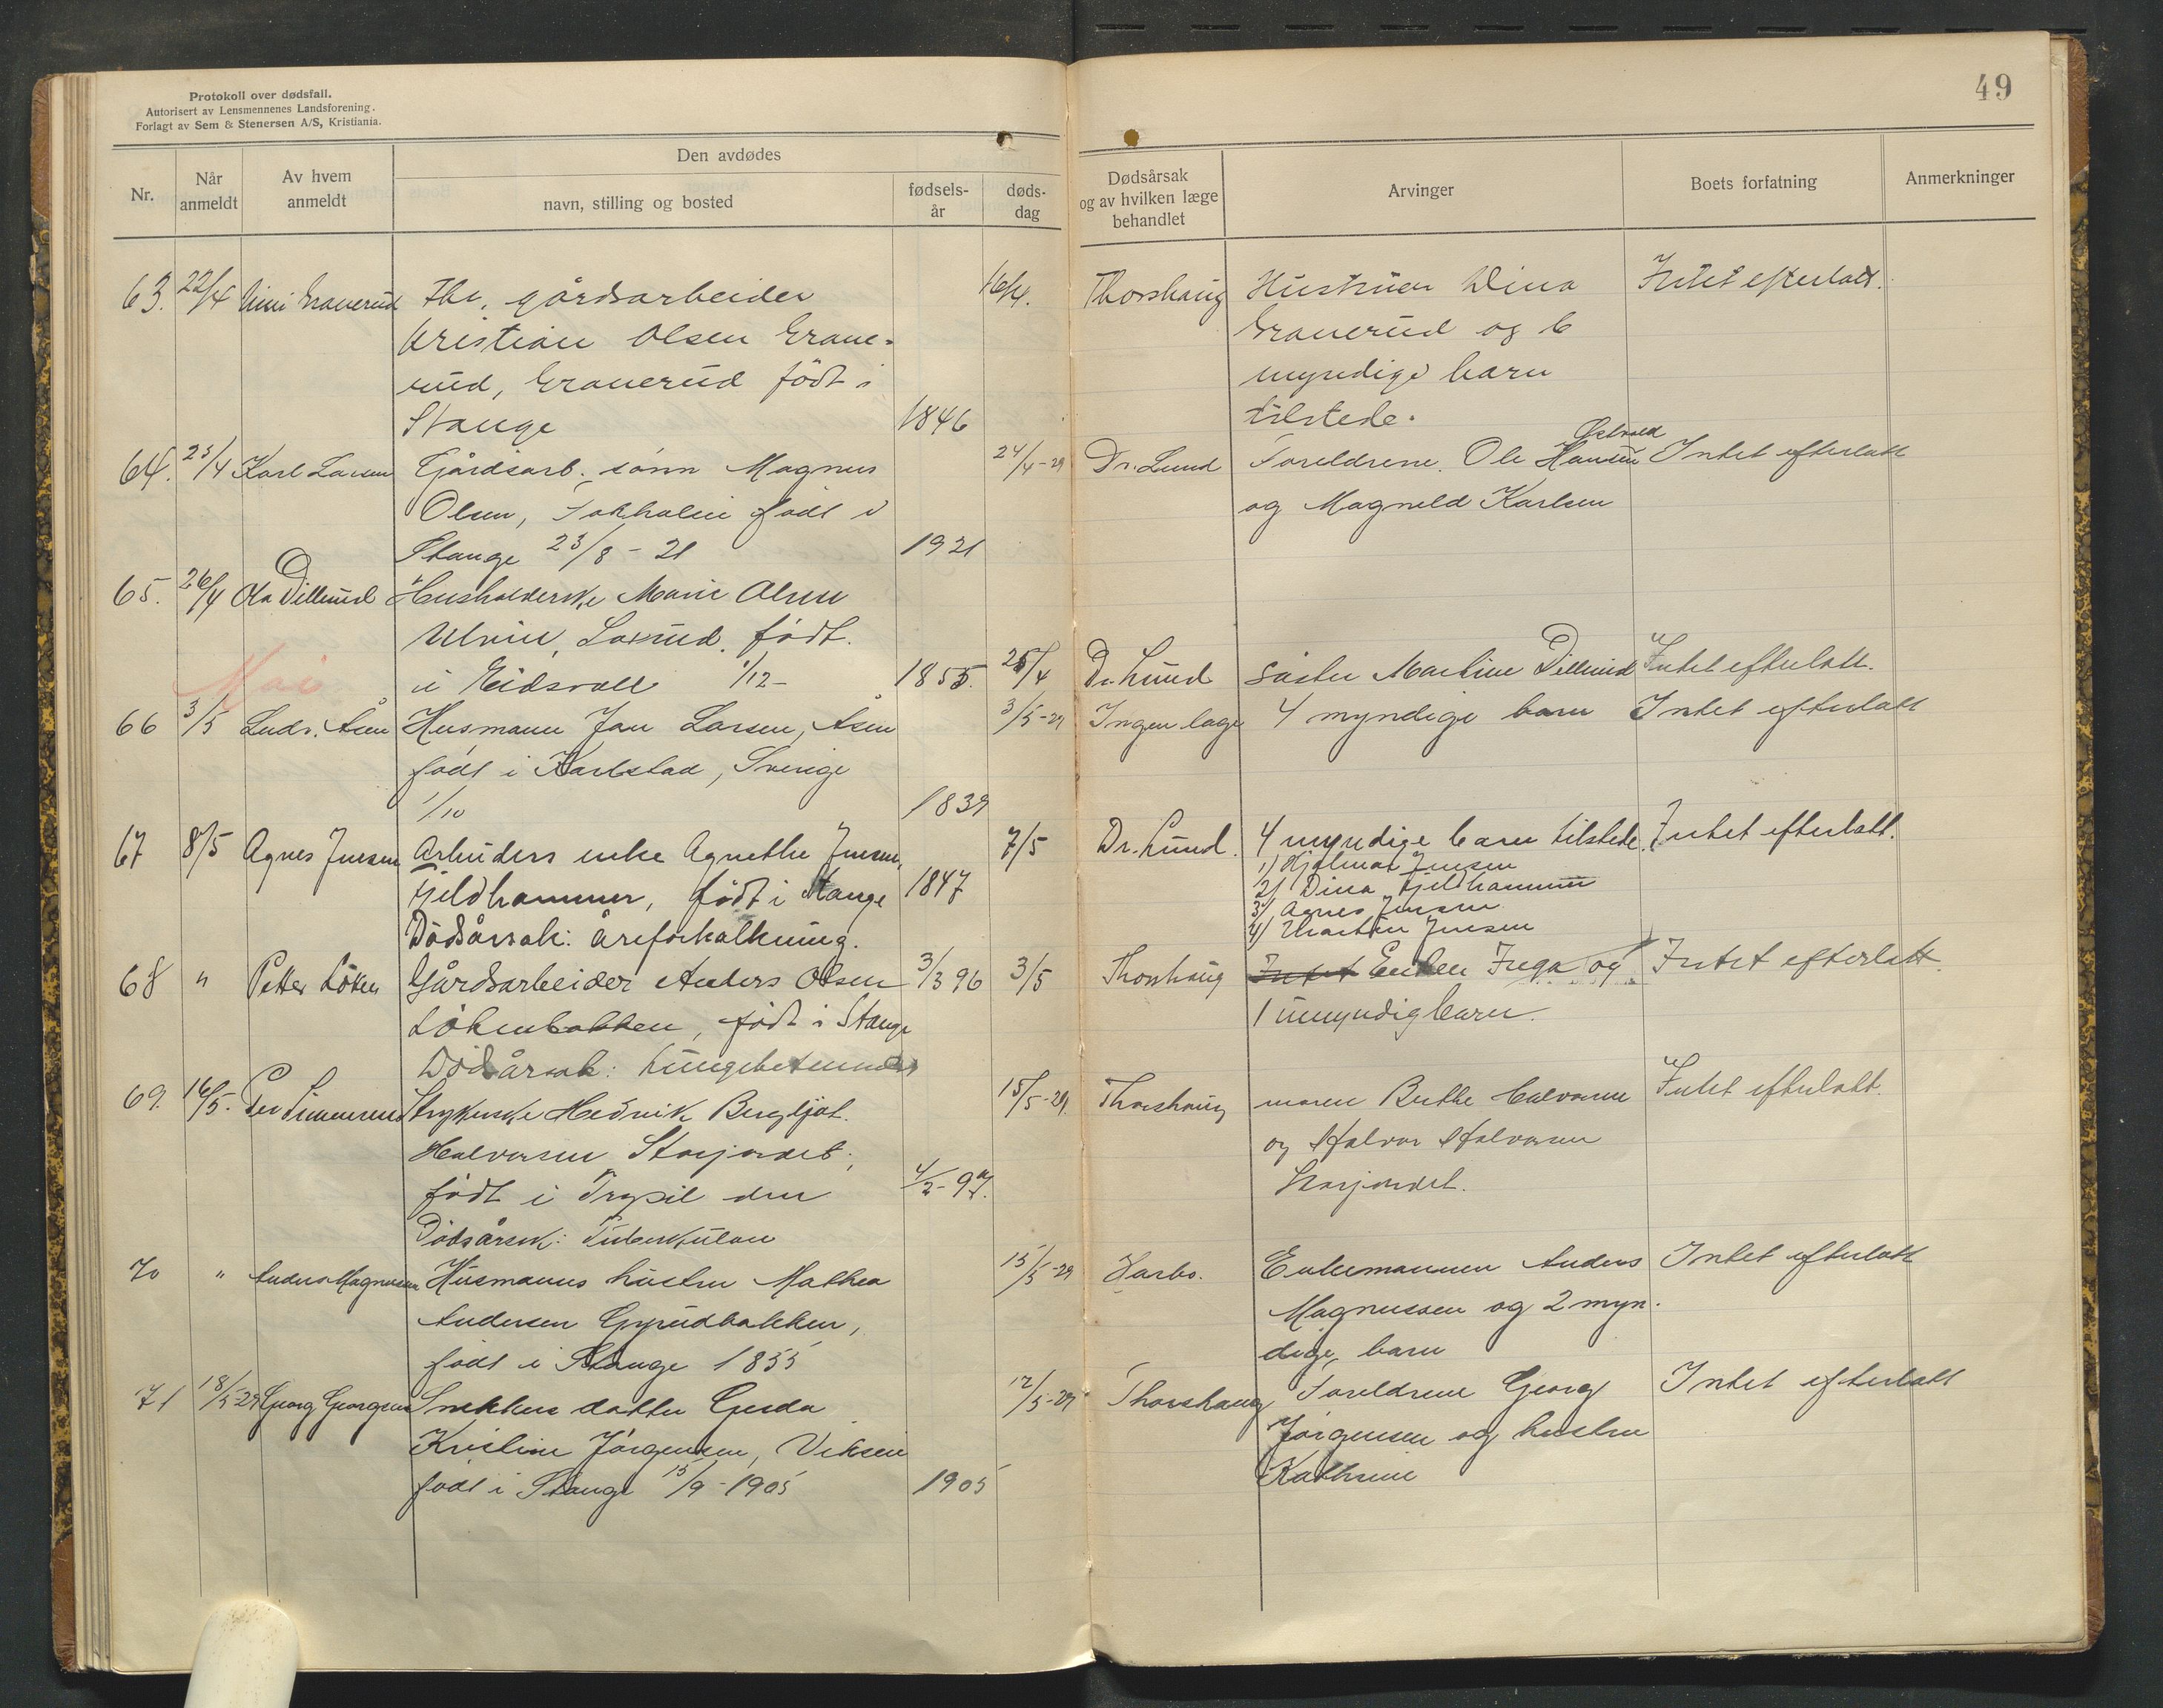 Protokoll over dødsfall.
Autorisert av Lensmennenes Landsforening.
Forlagt av Sem & Stenersen A/S, Kristiania.
49
Nr.
Når anmeldt
Av hvem anmeldt
Den avdødes
navn, stilling og bosted
fødsels-år
døds-dag
Dødsårsak og av hvilken læge behandlet
Arvinger
Boets forfatning
Anmerkninger
63. 22/4 Grauerud fhv. gårdsarbeider 16/4. Thorshaug Hustruen Dina Intet efterlatt.
Kristian Olsen Graue- Grauerud og 6
rud, Grauerud født i myndige barn
Stange 1846 tilstede.
64. 25/4 Karl Larsen Gårdsarb. sønn Magnus 24/4-29 Dr. Lund Foreldrene Ole Hansen Intet efterlatt
Olsen, født i og Magnild Karlsen
Stange 23/8-21 1921
65. 26/4 Ola Dillerud Husholderske Marie Olsen
født.
i Eidsvoll 1/12- 1855. 25/4 Dr. Lund søster Martine Dillerud Intet efterlatt.
Mai
66 3/5 Ludv. Åsen Husmann Jan Larsen, Åsen 3/5-29 Ingen læge 4 myndige barn Intet efterlatt
født i Karlstad, Sverige
1/10 1839
67 8/5 Agnes Jensen Arbeiders enke Agnethe Jensen, 7/5 Dr. Lund. 4 myndige barn tilstede. Intet efterlatt.
Fjeldhammer, født i Stange 1847 1) Hjalmar Jensen
2) Dina Fjeldhammer
3) Agnes Jensen
Dödsårsak: åreforkalkning. 4) Martin Jensen
68 " Petter Löken Gårdsarbeider Anders Olsen 3/3 96 3/5 Thorshaug Intet Enken Inga og Intet efterlatt.
Lökenbakken, født i Stange 1 umyndig barn.
Dödsårsak: Lungebetennelse
69. 16/5. Per Strykerske Hedvik Bergljot 15/5-29. Thorshaug moren Berthe Halvorsen Intet efterlatt.
Halvorsen Storjordet, og Halvor Halvorsen
født i Trysil den 4/2-97. Storjordet.
Dödsårsak: Tuberkulose
70 " Anders Magnussen Husmanns hustru Mathea 15/5-29 Enkemannen Anders Intet efterlatt
Andersen Gyrudbakken, Magnussen og 2 myn-
født i Stange 1855 dige barn
71 18/5-29 Georg Snekkers datter Gerda 12/5-29 Thorshaug Foreldrene Georg Intet efterlatt
Kristine Jørgensen, Viksen Jørgensen og hustru
født i Stange 15/9-1905 1905 Kathrine